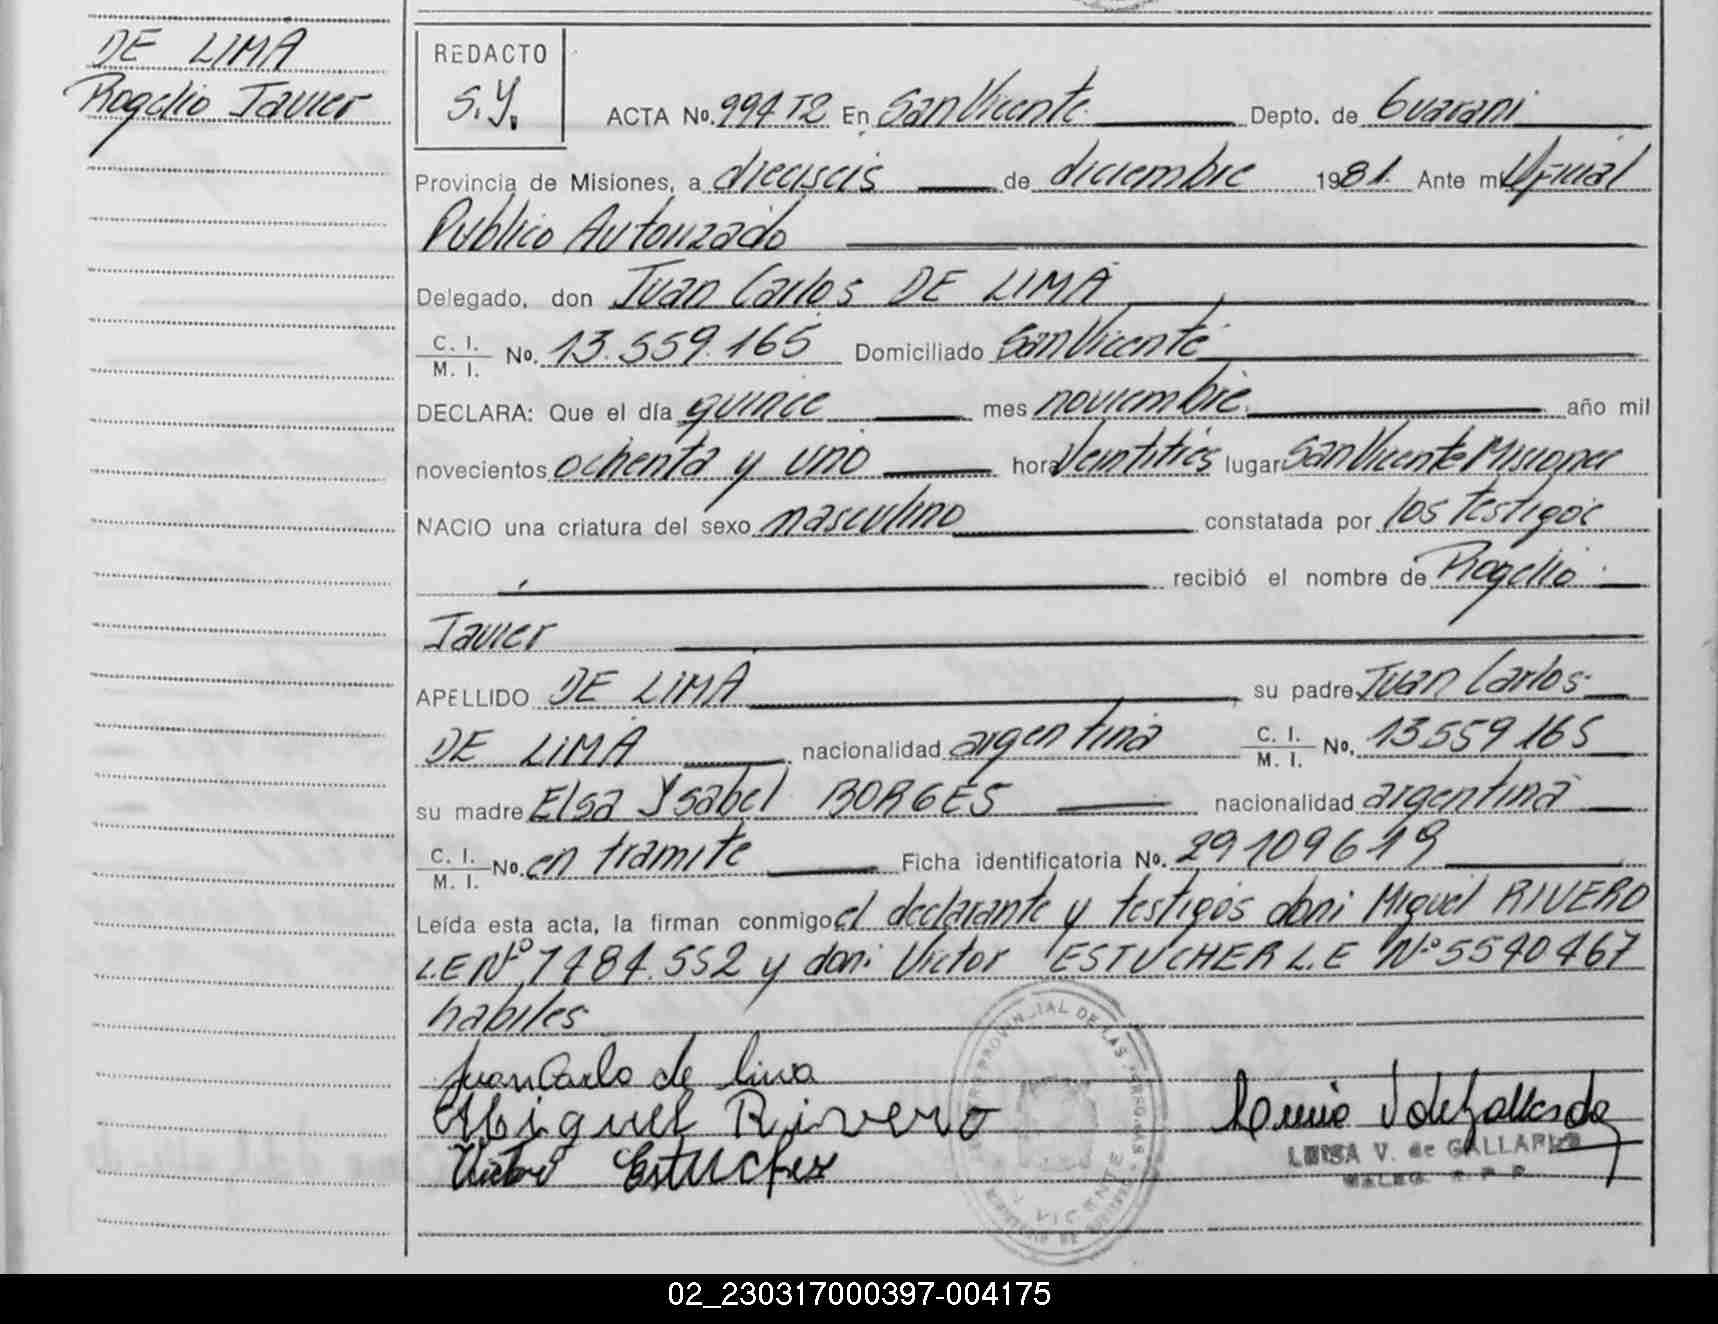 DE LIMA
Rogelio Javier
REDACTO
S.Y.
ACTA No. 994 T2 En San Vicente Depto. de Guarani
Provincia de Misiones, a dieciseis de diciembre 1981. Ante mi Oficial
Publico Autorizado
Delegado, don Juan Carlos DE LIMA
C. I. / M. I. No. 13.559.165 Domiciliado San Vicente
DECLARA: Que el día quince mes noviembre año mil
novecientos ochenta y uno hora veintitres lugar San Vicente Misiones
NACIO una criatura del sexo masculino constatada por los testigos
recibió el nombre de Rogelio
Javier
APELLIDO DE LIMA su padre Juan Carlos
DE LIMA nacionalidad argentina C. I. / M. I. No. 13559165
su madre Elsa Ysabel BORGES nacionalidad argentina
C. I. / M. I. No. en tramite Ficha identificatoria No. 29109619
Leída esta acta, la firman conmigo el declarante y testigos don: Miguel RIVERO
L.E Nº 7484.552 y don: Victor ESTUCHER L.E Nº 5540467
habiles
Juan Carlo de Lima
Miguel Rivero
Victor Estucher
LUISA V. de GALLARDO
02_230317000397-004175